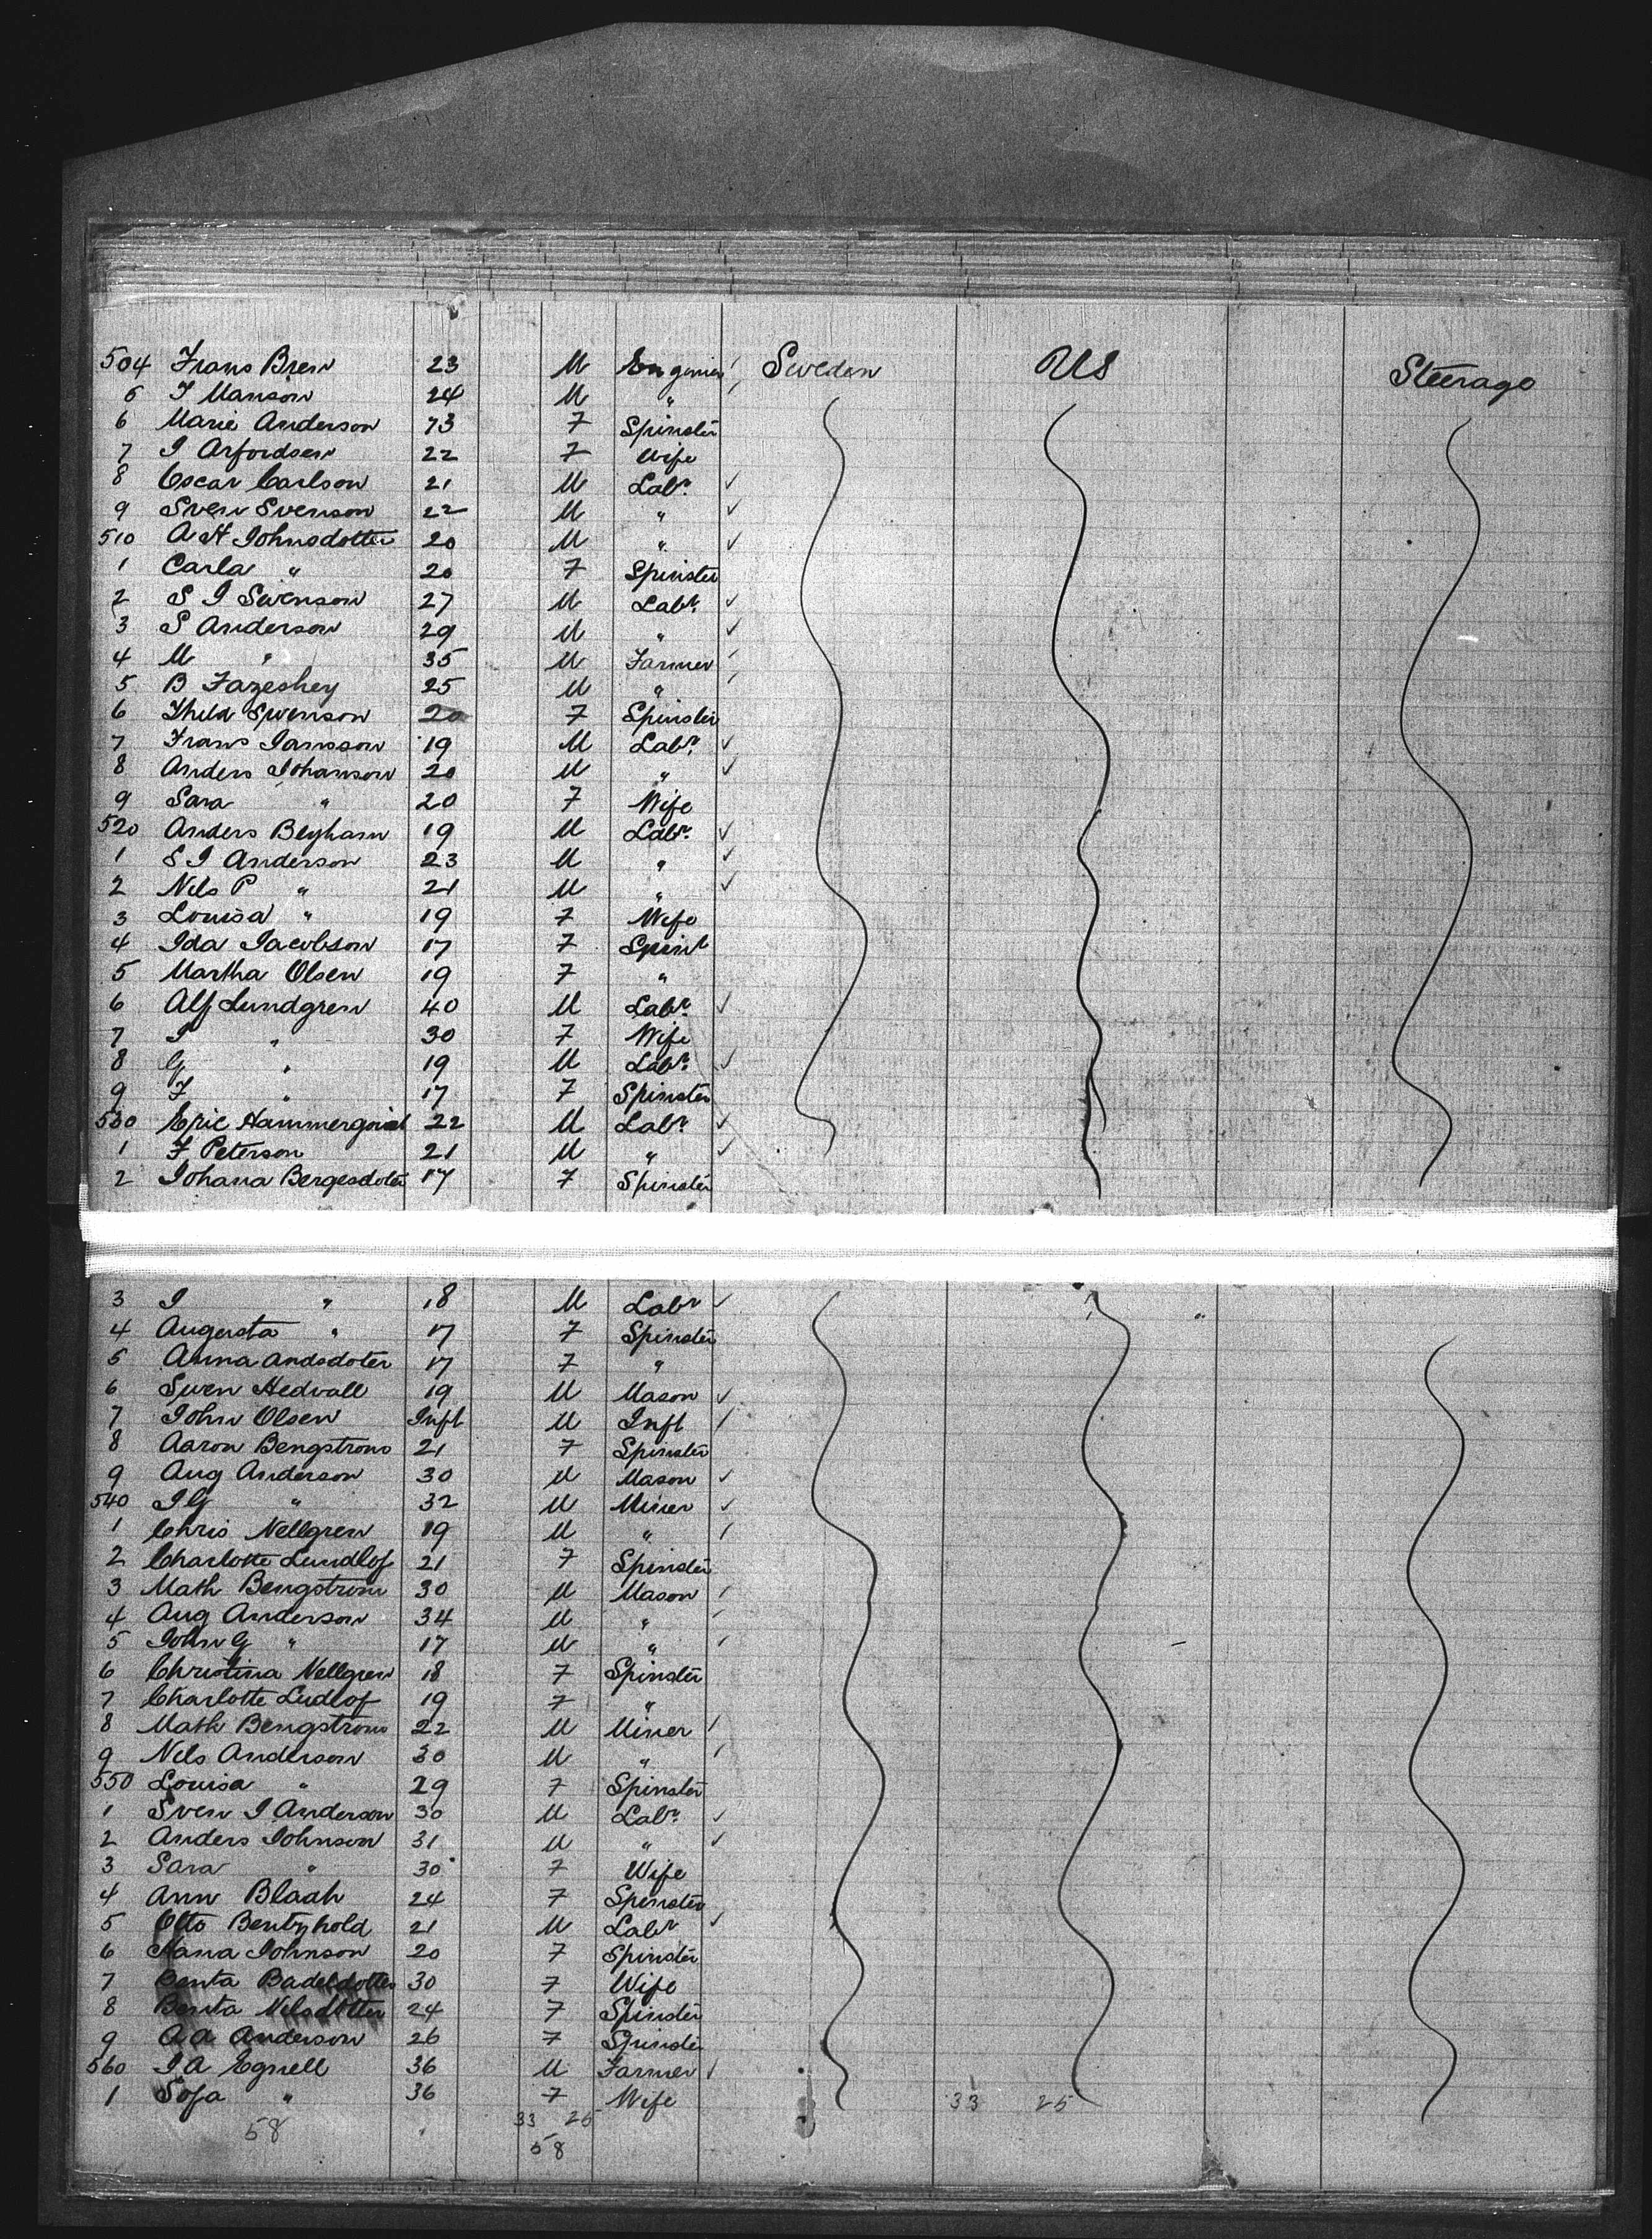 504 Frans Bren 23 M Enginier Sweden US Steerage
5 F Manson 24 M "
6 Marie Anderson 73 F Spinster
7 I Arfordsen 22 F Wife
8 Oscar Carlson 21 M Labr
9 Sven Svenson 22 M "
510 A H Johnsdotter 20 M "
1 Carla " 20 F Spinster
2 S I Swenson 27 M Labr
3 S Anderson 29 M "
4 M " 35 M Farmer
5 B Fazeshey 25 M "
6 Thilda Swenson 20 F Spinster
7 Frans Jansson 19 M Labr
8 Anders Johanson 20 M "
9 Sara " 20 F Wife
520 Anders Beyham 19 M Labr
1 S I Anderson 23 M "
2 Nels P " 21 M "
3 Louisa " 19 F Wife
4 Ida Jacobson 17 F Spinst
5 Martha Olsen 19 F "
6 Alf Lundgren 40 M Labr
7 I " 30 F Wife
8 G " 19 M Labr
9 F " 17 F Spinster
530 Eric Hammerqvist 22 M Labr
1 F Peterson 21 M "
2 Johana Bergesdoter 17 F Spinster
3 I " 18 M Labr
4 Augusta " 17 F Spinster
5 Anna Andsdoter 17 F "
6 Swen Hedvall 19 M Mason
7 John Olsen Inft M Inft
8 Aaron Bengstrom 21 F Spinster
9 Aug Anderson 30 M Mason
540 I G " 32 M Miner
1 Chris Nellgren 19 M "
2 Charlotte Lundlof 21 F Spinster
3 Math Bengstrom 30 M Mason
4 Aug Anderson 34 M "
5 John G " 17 M "
6 Christina Nellgren 18 F Spinster
7 Charlotte Ludlof 19 F "
8 Math Bengstrom 22 M Miner
9 Nels Anderson 30 M "
550 Louisa " 29 F Spinster
1 Sven I Anderson 30 M Labr
2 Anders Johnson 31 M "
3 Sara " 30 F Wife
4 Ann Blaah 24 F Spinster
5 Otto Bentyhold 21 M Labr
6 Hana Johnson 20 F Spinster
7 Benta Badeldotter 30 F Wife
8 Benta Nilsdotter 24 F Spinster
9 A A Anderson 26 F Spinster
560 I A Egnell 36 M Farmer
1 Sofa " 36 F Wife
58 33 25 33 25
58